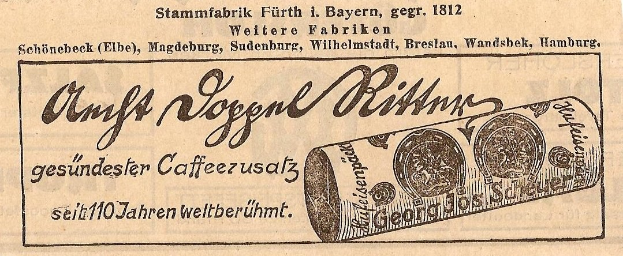 Stammfabrik Fürth i. Bayern, gegr. 1812
Weitere Fabriken
Schönebeck (Elbe), Magdeburg, Sudenburg, Wilhelmstadt, Breslau, Wandsbek, Hamburg.
Aecht Doppel Ritter
gesündester Caffeezusatz
seit 110 Jahren weltberühmt.
Hufeisenpackg
Georg Jos Scheuer
Hufeisen